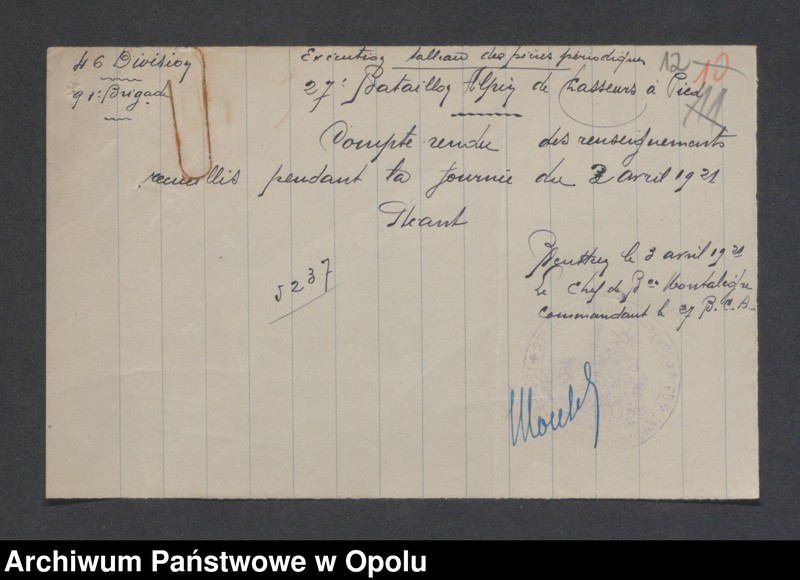 46 Division
91e Brigade
Exécution tableau des pièces périodiques
12 10
11
27e Bataillon Alpin de Chasseurs à Pied
Compte rendu des renseignements
recueillis pendant la journée du 3 avril 1921
Néant
5237
le 3 avril 1921
Le Chef de Bon
commandant le 27 B.C.A.
Archiwum Państwowe w Opolu